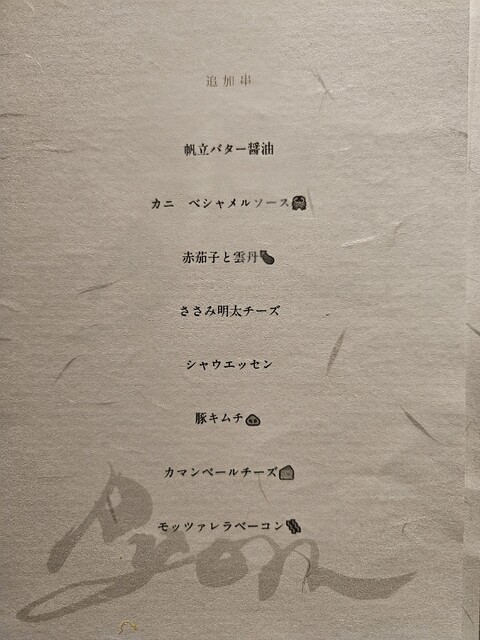 追加串
帆立バター醤油
カニ ベシャメルソース🦀
赤茄子と雲丹🍆
ささみ明太チーズ
シャウエッセン
豚キムチ🐽
カマンベールチーズ🧀
モッツァレラベーコン🥓